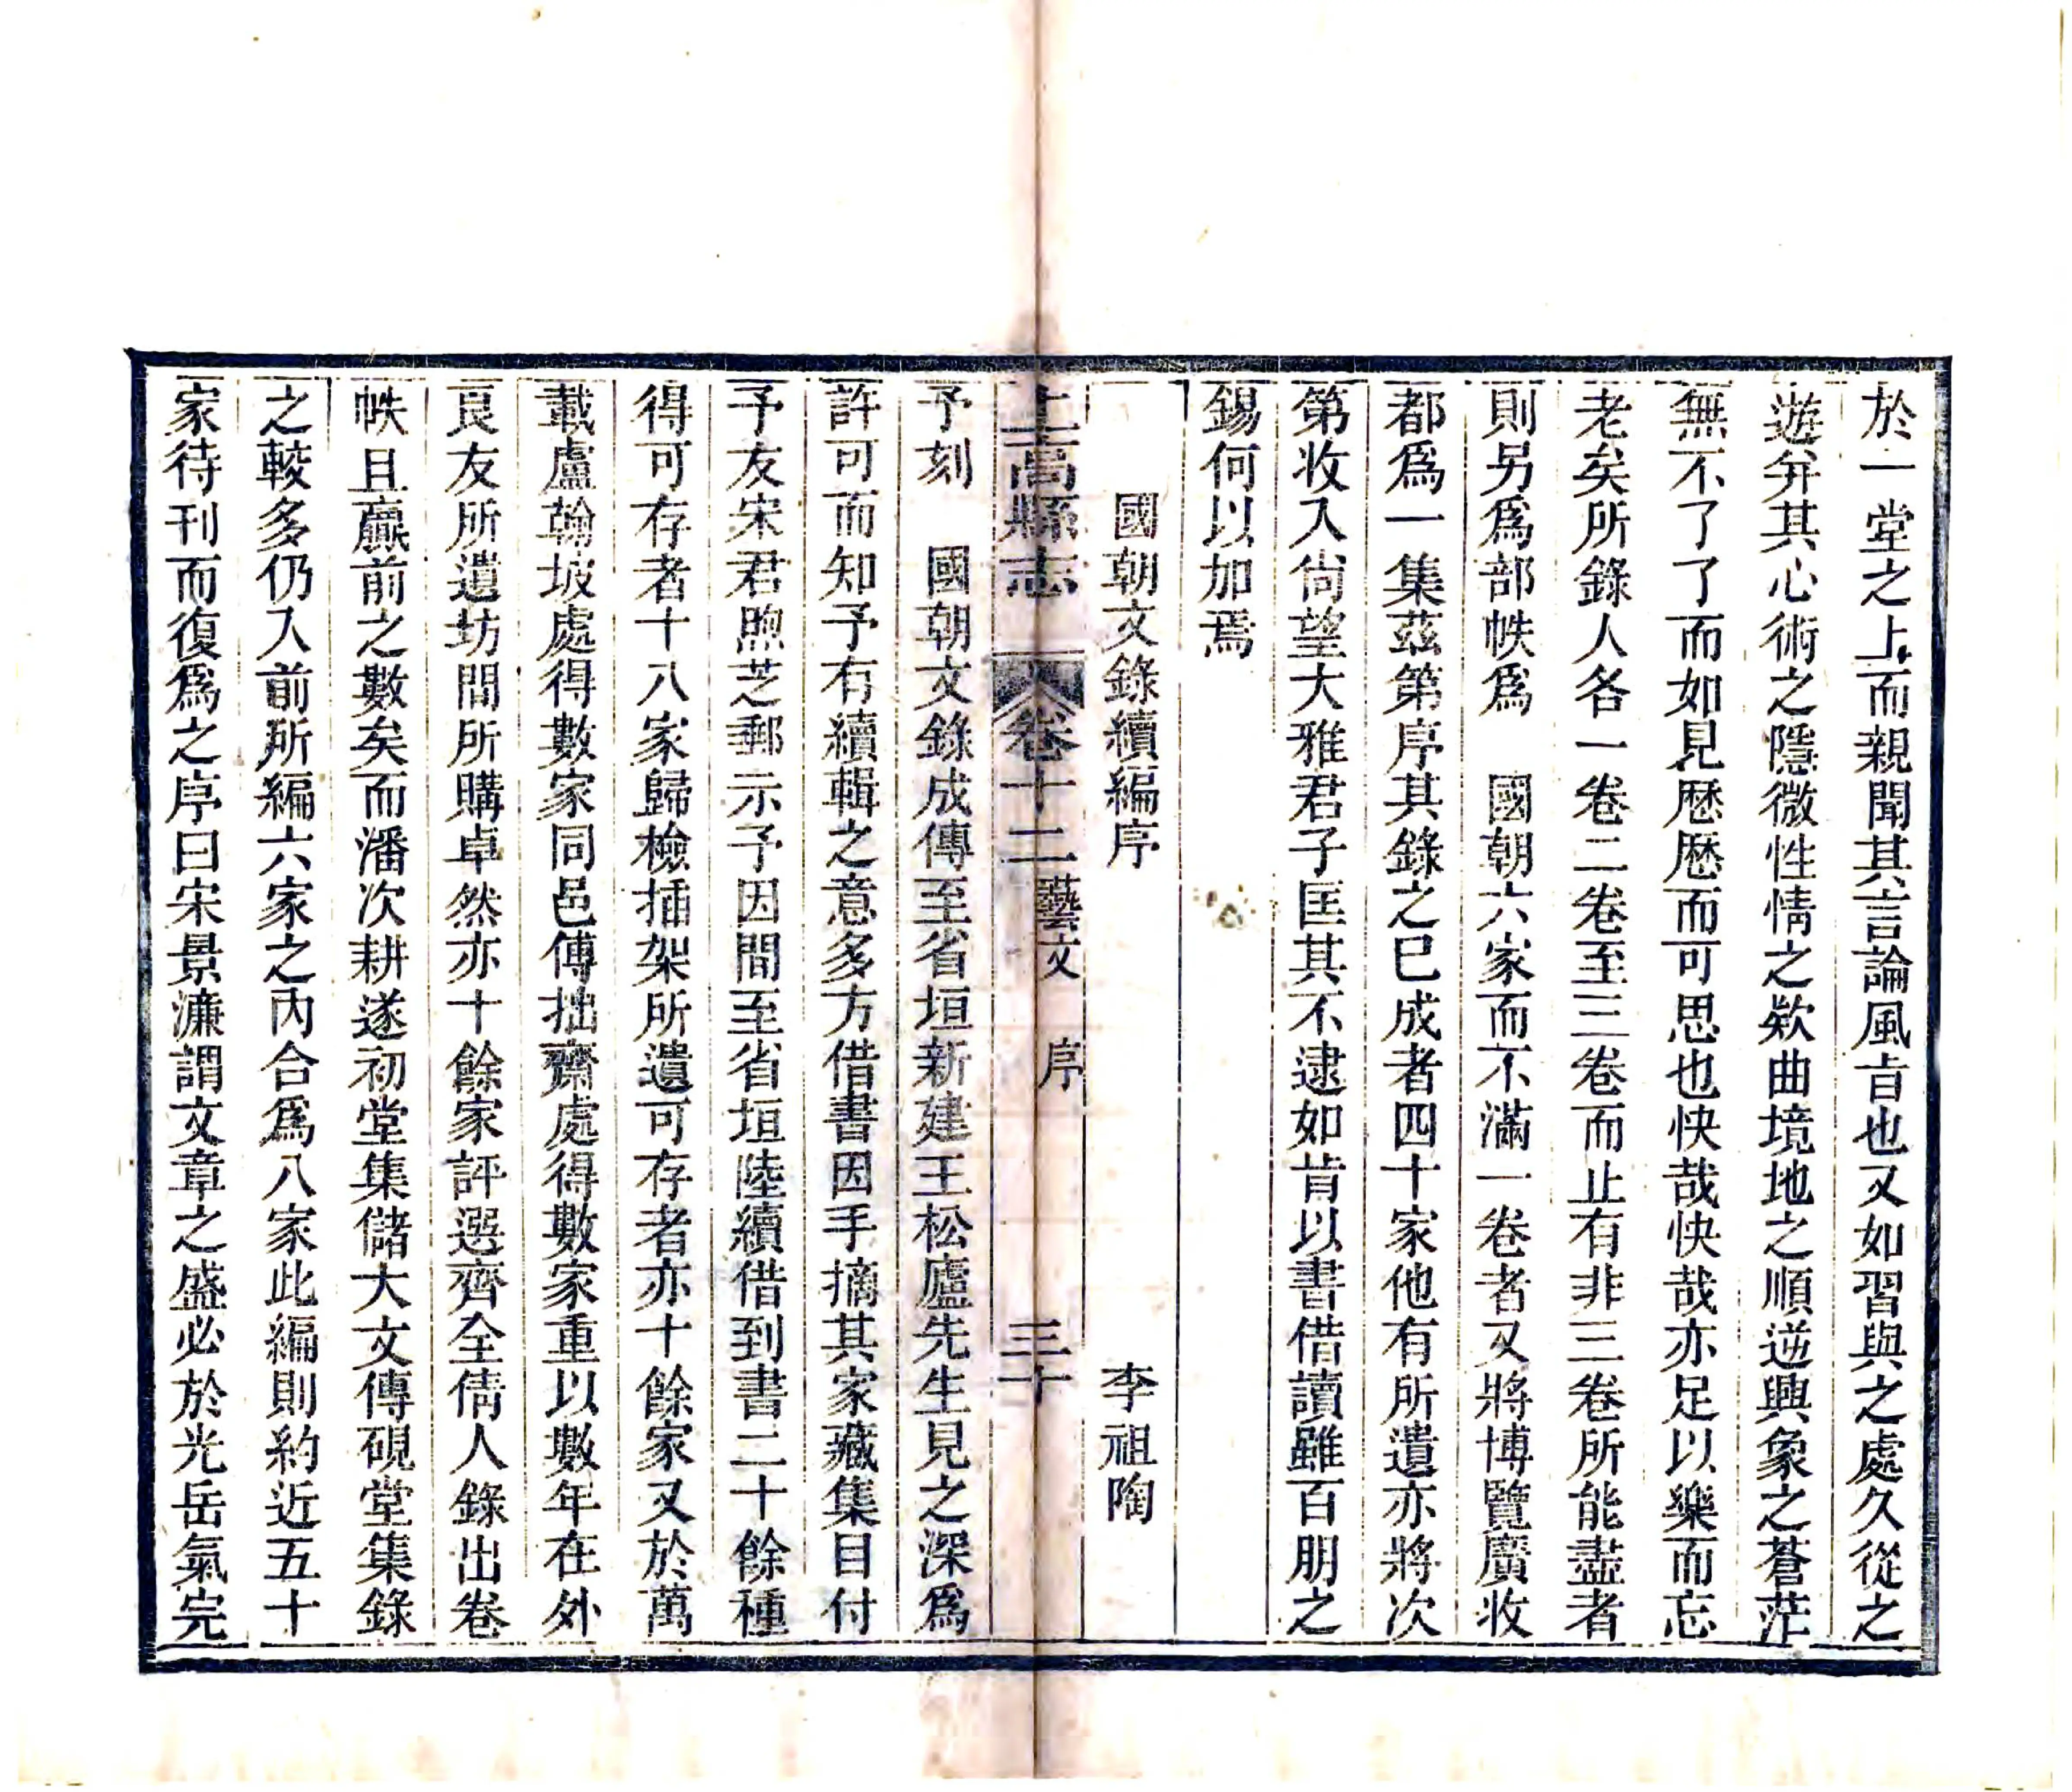 於一堂之上而親聞其言論風旨也又如習與之處久從之
遊并其心術之隱微性情之欵曲境地之順逆興象之蒼茫
無不了了而如見歷歷而可思也快哉快哉亦足以樂而忘
老矣所錄人各一卷二卷至三卷而止有非三卷所能盡者
則另爲部帙爲　國朝六家而不滿一卷者又將博覽廣收
都爲一集茲第序其錄之已成者四十家他有所遺亦將次
第收入尙望大雅君子匡其不逮如肯以書借讀雖百朋之
錫何以加焉
國朝文錄續編序　李祖陶
上高縣志　卷十二藝文　序　三十
予刻　國朝文錄成傳至省垣新建王松廬先生見之深爲
許可而知予有續輯之意多方借書因手摘其家藏集目付
予友宋君煦芝郵示予因間至省垣陸續借到書二十餘種
得可存者十八家歸檢插架所遺可存者亦十餘家又於萬
載盧翰坡處得數家同邑傅拙齋處得數家重以數年在外
良友所遺坊間所購卓然亦十餘家評選齊全倩人錄出卷
帙且贏前之數矣而潘次耕遂初堂集儲大文傳硯堂集錄
之較多仍入前所編六家之內合爲八家此編則約近五十
家待刊而復爲之序曰宋景濂謂文章之盛必於光岳氣完